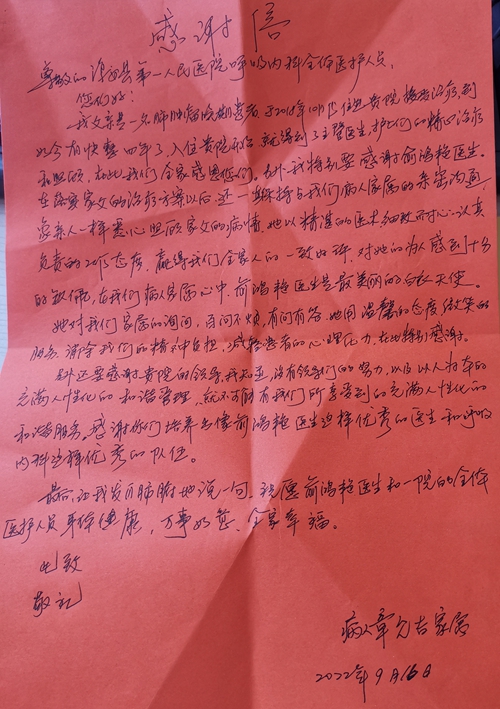 感谢信
尊敬的 县第一人民医院呼吸内科全体医护人员,
您们好!
我父亲是一名肺肿瘤晚期患者,于2018年10月 住进贵院接受治疗,到
如今有快整四年了,入住贵院和后就得到了主管医生,护士们的精心治疗
和照顾,在此我们全家感恩您们。另外我特别要感谢俞鸿艳医生。
在 家父的治疗方案以后,还一 持与我们病人家属的亲密沟通,
象亲人一样悉心照顾家父的病情,她以精湛的医术细致而耐心认真
负责的工作态度,赢得我们全家人的一致好评,对她的为人感到十分
的钦佩,在我们病人家属心中,俞鸿艳医生是最美丽的白衣天使。
她对我们家属的询问,百问不烦,有问有答,她用温馨的态度,微笑的
服务,消除我们的精神负担,减轻患者的心理压力,在此特别感谢。
另外还要感谢贵院的领导,我知道,没有领导们的努力,以及以人为本的
充满人性化的和谐管理,就不可能有我们所享受到的充满人性化的
和谐服务。感谢你们培养出像俞鸿艳医生这样优秀的医生和呼吸
内科这样优秀的队伍。
最后,让我发自肺腑地说一句,祝愿俞鸿艳医生和一院的全体
医护人员身体健康,万事如意,全家幸福。
此致
敬礼
病人章允吉家属
2022年9月16日